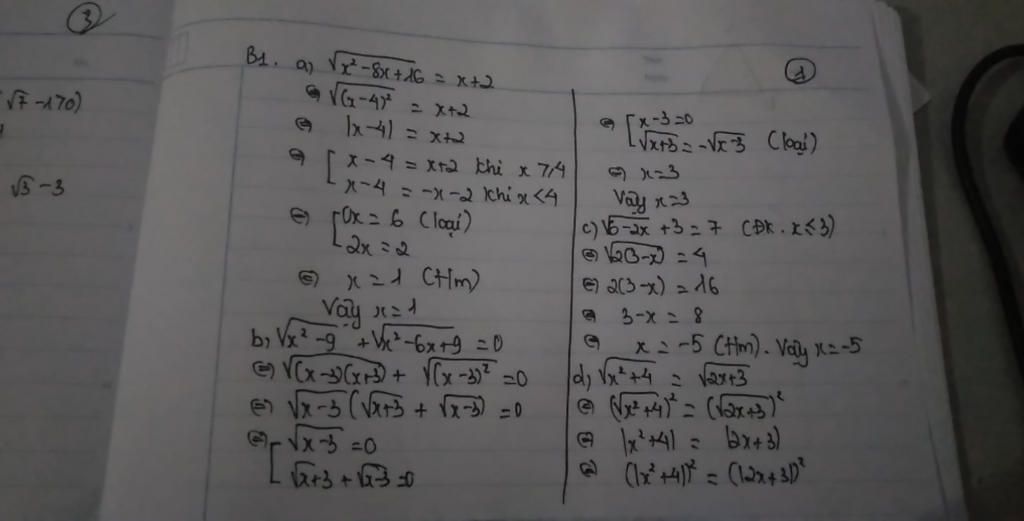 ③
√7 - 170)
√5 - 3
①
B1. a) √(x² - 8x + 16) = x+2
⇔ √((x-4)²) = x+2
⇔ |x-4| = x+2
⇔ [ x - 4 = x+2 khi x ≥ 4
x - 4 = -x - 2 khi x < 4
⇔ [ 0x = 6 (loại)
2x = 2
⇔ x = 1 (t/m)
Vậy x = 1
b) √(x² - 9) + √(x² - 6x + 9) = 0
⇔ √((x-3)(x+3)) + √((x-3)²) = 0
⇔ √(x-3) (√(x+3) + √(x-3)) = 0
⇔ [ √(x-3) = 0
√(x+3) + √(x-3) = 0
⇔ [ x - 3 = 0
√(x+3) = -√(x-3) (loại)
⇔ x = 3
Vậy x = 3
c) √(6-2x) + 3 = 7 (ĐK. x ≤ 3)
⇔ √(2(3-x)) = 4
⇔ 2(3-x) = 16
⇔ 3-x = 8
⇔ x = -5 (t/m). Vậy x = -5
d) √(x²+4) = √(2x+3)
⇔ (√(x²+4))² = (√(2x+3))²
⇔ |x²+4| = |2x+3|
⇔ (|x²+4|)² = (|2x+3|)²